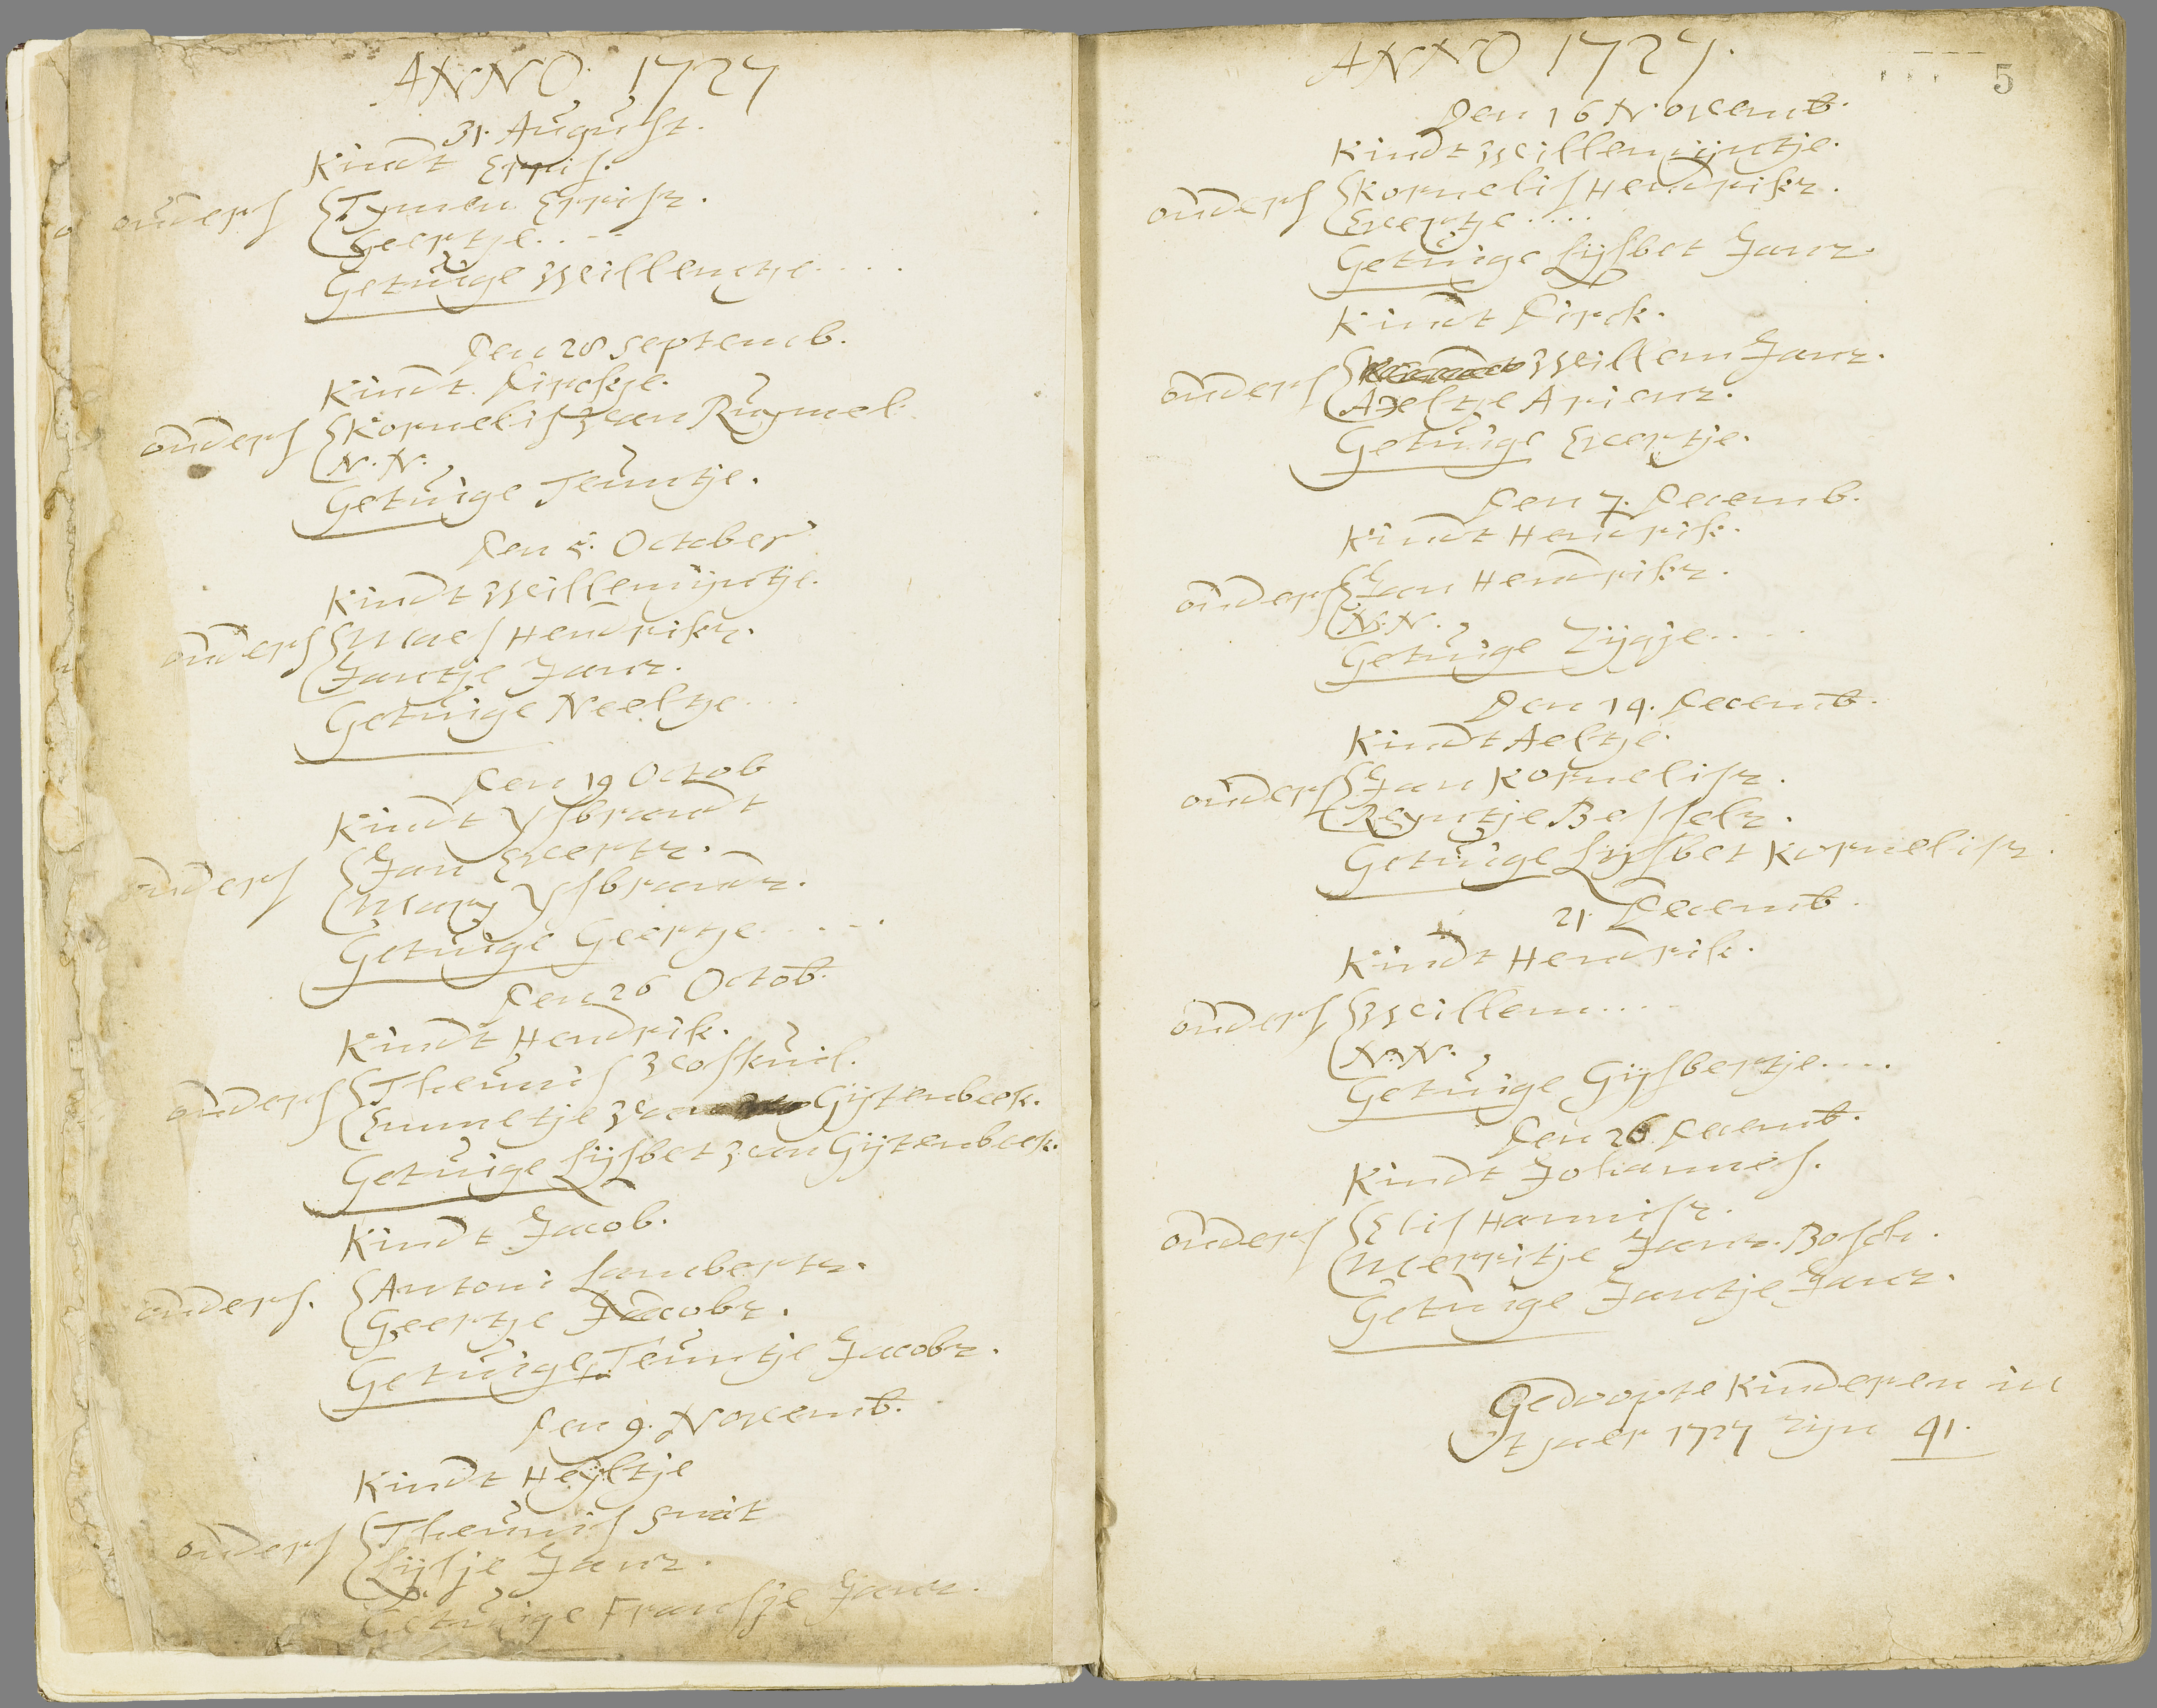 ANNO. 1727
31. August.
Kindt Erris.
ouders Tymen Errisz.
Geertje....
Getuige Willentje....
Den 28 Septemb.
Kindt. Dirckje.
ouders Kornelis van Ruymel
N. N.
Getuige Teuntje.
Den 5. October
Kindt Willemijntje.
ouders Maes Hendriksz.
Jantje Janz.
Getuige Neeltje...
Den 19 Octob
Kindt Ysbrandt
ouders Jan Evertz.
Mary Ysbrandz.
Getuige Geertje.....
Den 26 Octob.
Kindt Hendrik.
ouders Theunis Voskuil.
Emmetje van Gijtenbeek.
Getuige Lijsbet van Gijtenbeek.
Kindt Jacob.
ouders. Antoni Lambertz.
Geertje Jacobz.
Getuige Teuntje Jacobz.
Den 9. Novemb.
Kindt Heyltje
ouders Theunis Smit
Lijsje Janz.
Getuige Fransje Janz.
ANNO 1727.
5
Den 16 Novemb.
Kindt Willemijntje.
ouders Kornelis Hendrikz.
Evertje....
Getuige Lijsbet Janz.
Kindt Dirck.
ouders Willem Janz.
Aeltje Arienz.
Getuige Evertje.
Den 7. Decemb.
Kindt Hendrik.
ouders Jan Hendrikz.
N. N.
Getuige Zijgje....
Den 14. Decemb.
Kindt Aeltje.
ouders Jan Kornelisz.
Reyntje Besselz.
Getuige Lijsbet Kornelisz.
21. Decemb.
Kindt Hendrik.
ouders Willem....
N. N.
Getuige Gijsbertje....
Den 26 Decemb.
Kindt Johannes.
ouders Elis Hannisz.
Merritje Janz. Bosch.
Getuige Jantje Janz.
Gedoopte Kinderen in
't jaer 1727 zijn 41.